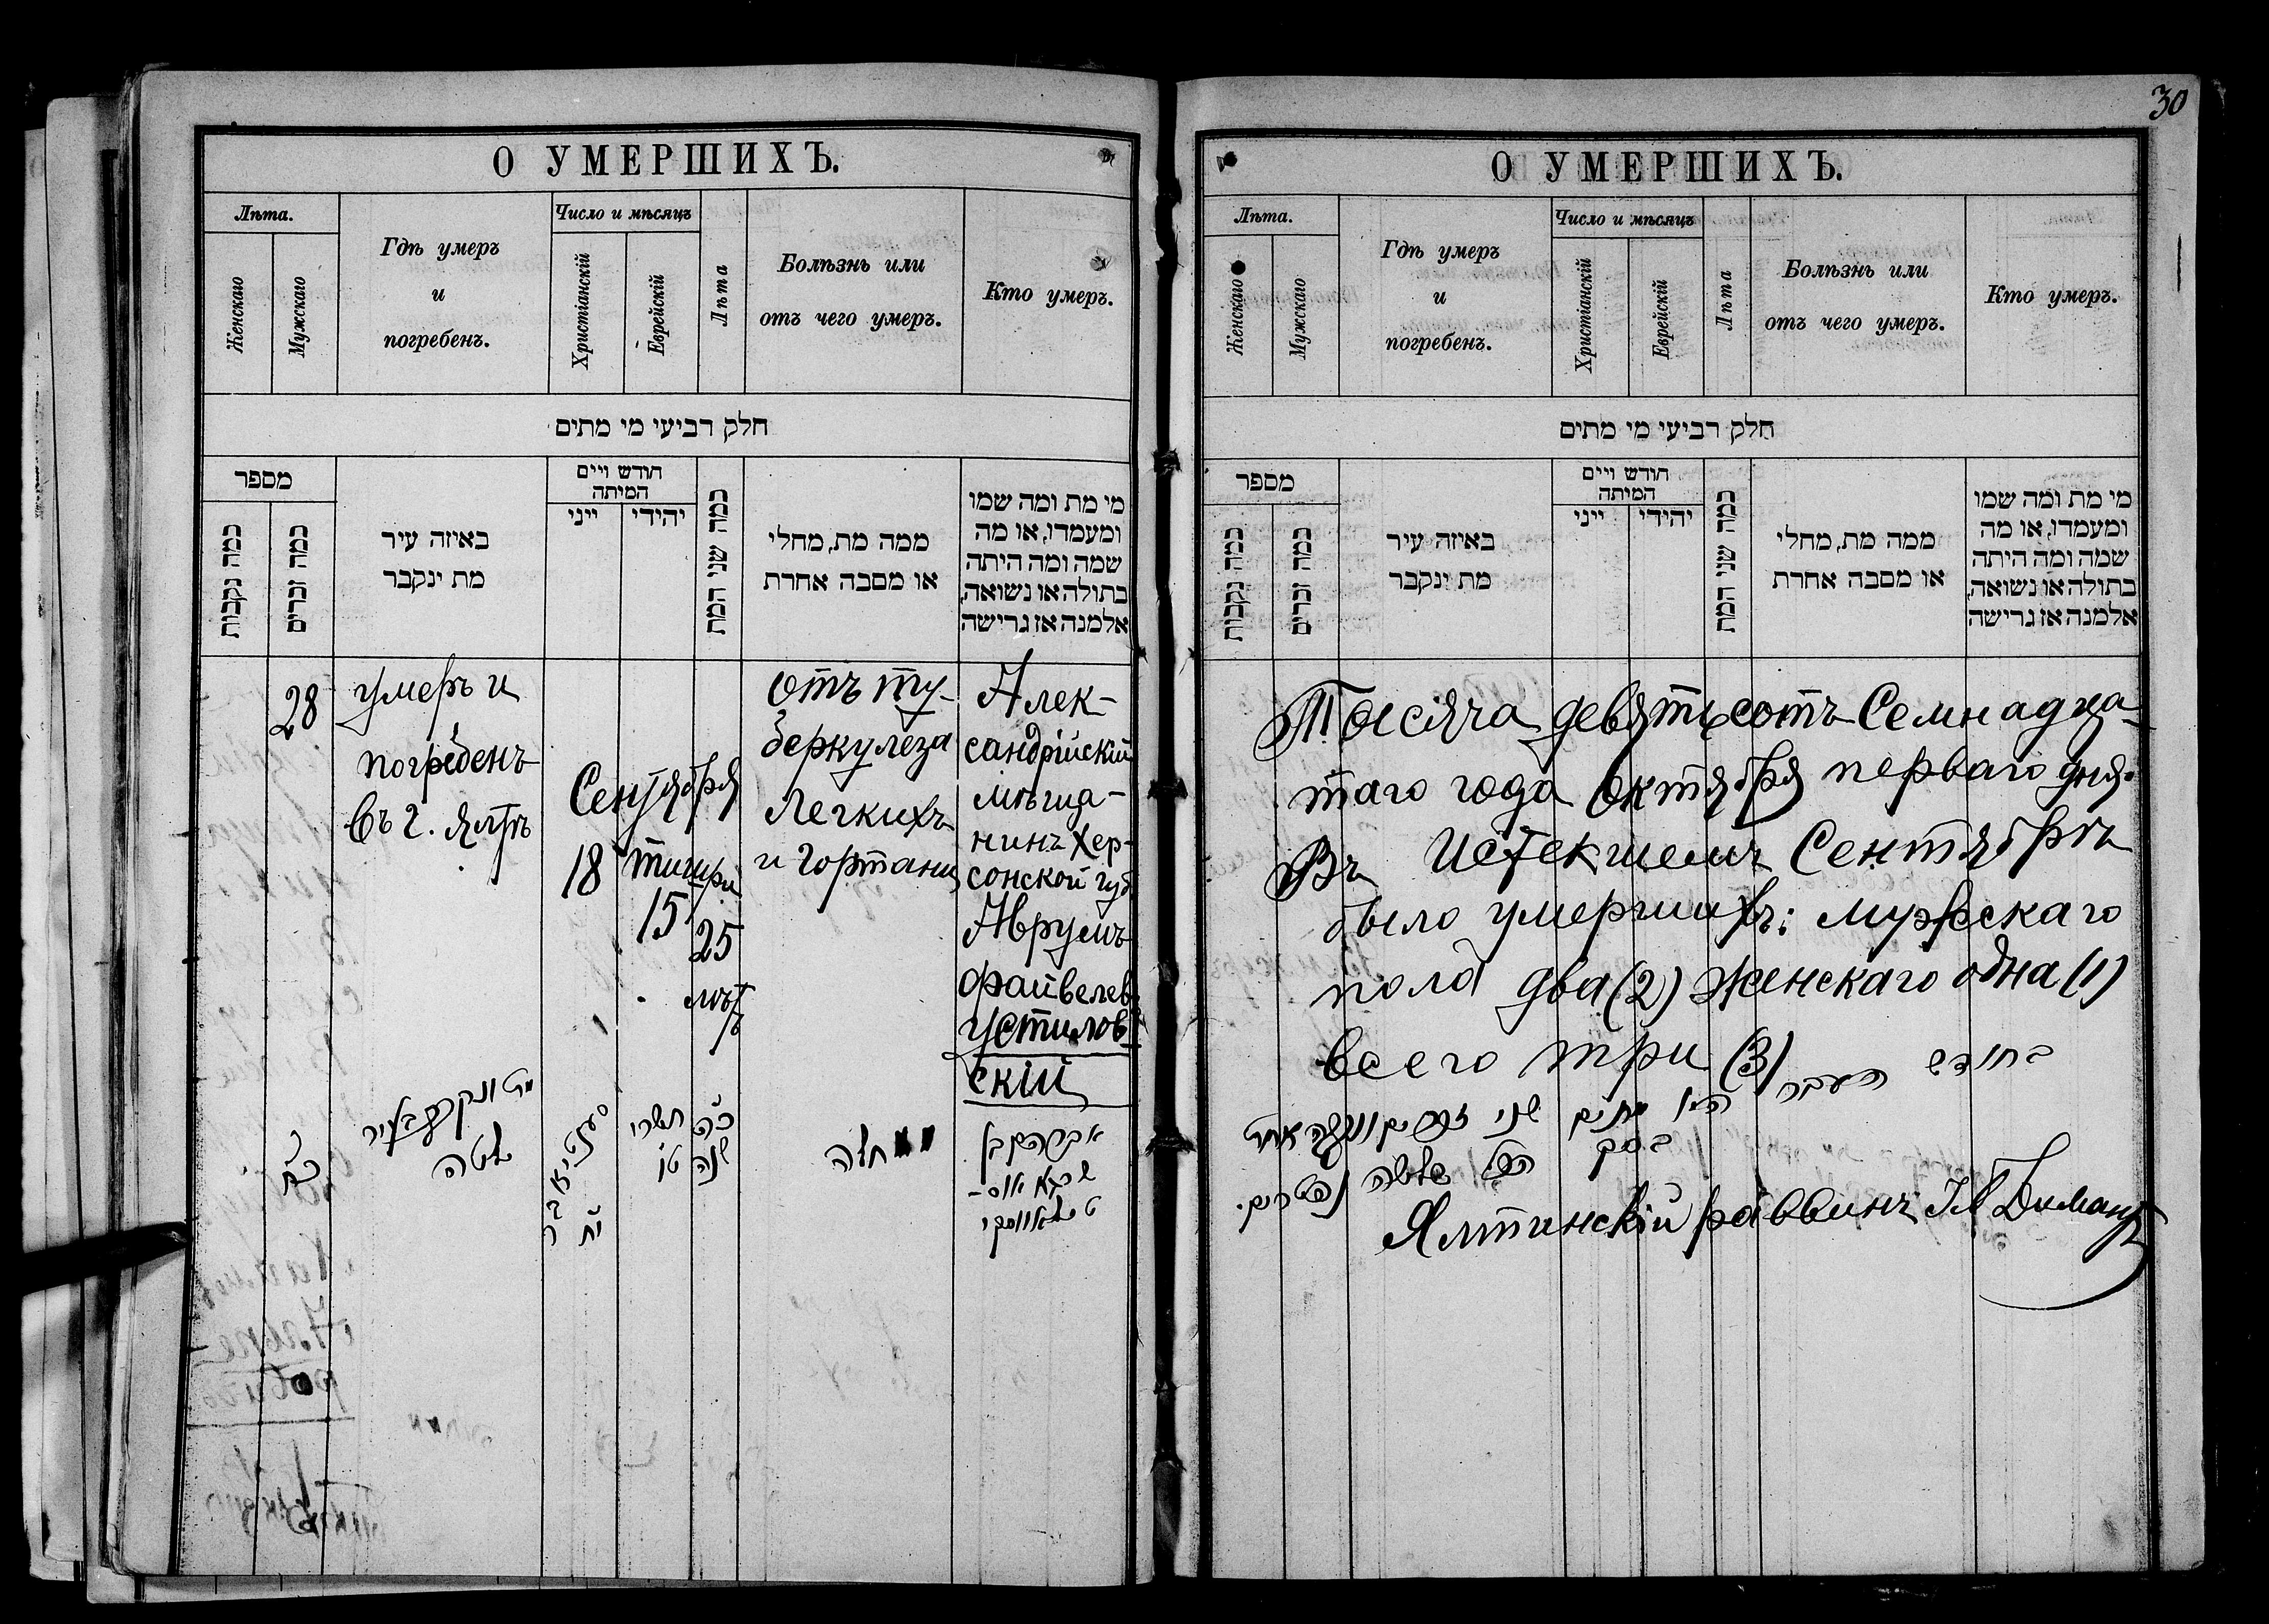 30
О УМЕРШИХЪ.
Лѣта.
Женскаго
Мужскаго
Гдѣ умеръ
и
погребенъ.
Число и мѣсяцъ
Христіанскій
Еврейскій
Лѣта
Болѣзнь или
отъ чего умеръ.
Кто умеръ.
חלק רביעי מי מתים
מספר
כמה נקבות
כמה זכרים
באיזה עיר
מת ינקבר
חודש ויים
המיתה
ייני
יהידי
כמה שני המת
ממה מת, מחלי
או מסבה אחרת
מי מת ומה שמו
ומעמדו, או מה
שמה ומה היתה
בתולה או נשואה,
אלמנה אז גרישה
28
умеръ и
погребенъ
въ г. Ялтѣ
Сентября
18
тишри
15
25
лѣтъ
отъ ту-
беркулеза
легкихъ
и гортани
Алек-
сандрійскій
мѣща-
нинъ Хер-
сонской губ
Аврумъ
Файвелев
Устилов-
скій
כ״ח
יאלטה
י״ח
תשרי
ט״ו
כ״ה
שנה
אברהם בן
О УМЕРШИХЪ.
Лѣта.
Женскаго
Мужскаго
Гдѣ умеръ
и
погребенъ.
Число и мѣсяцъ
Христіанскій
Еврейскій
Лѣта
Болѣзнь или
отъ чего умеръ.
Кто умеръ.
חלק רביעי מי מתים
מספר
כמה נקבות
כמה זכרים
באיזה עיר
מת ינקבר
חודש ויים
המיתה
ייני
יהידי
כמה שני המת
ממה מת, מחלי
או מסבה אחרת
מי מת ומה שמו
ומעמדו, או מה
שמה ומה היתה
בתולה או נשואה,
אלמנה אז גרישה
Тысяча девятьсотъ Семнадца-
таго года Октября перваго дня.
Въ истекшемъ Сентябрѣ
было умершихъ: мужскаго
пола два (2) женскаго одна (1)
всего три (3)
בחודש העבר
היו מתים שני זכרים ונקבה אחת
בסך הכל שלשה נפטרים.
Ялтинскій раввинъ